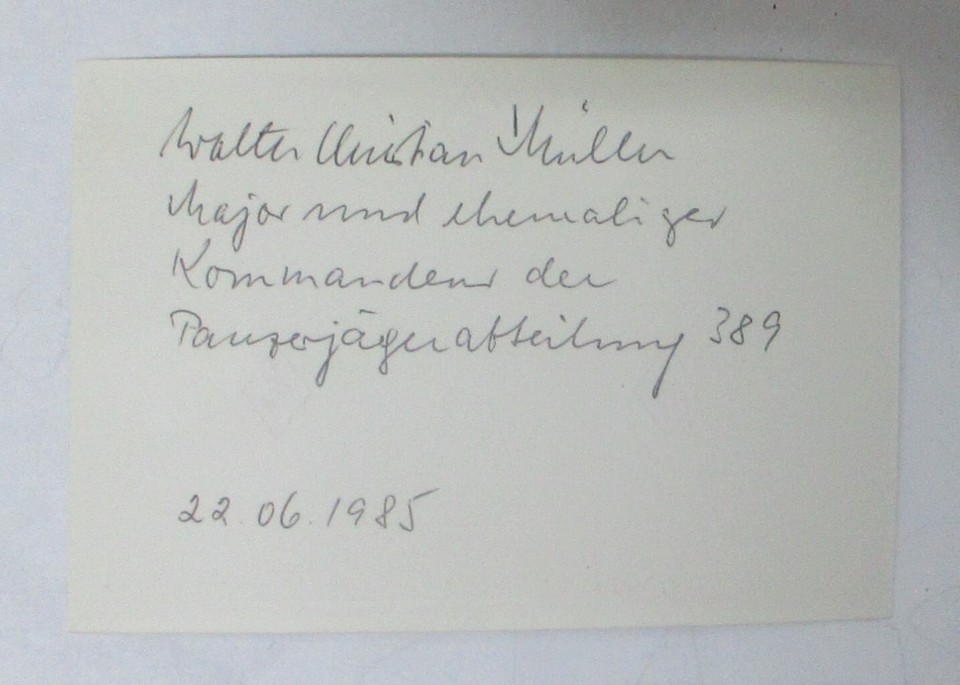 Walter Christian Müller
Major und ehemaliger
Kommandeur der
Panzerjägerabteilung 389
22.06.1985